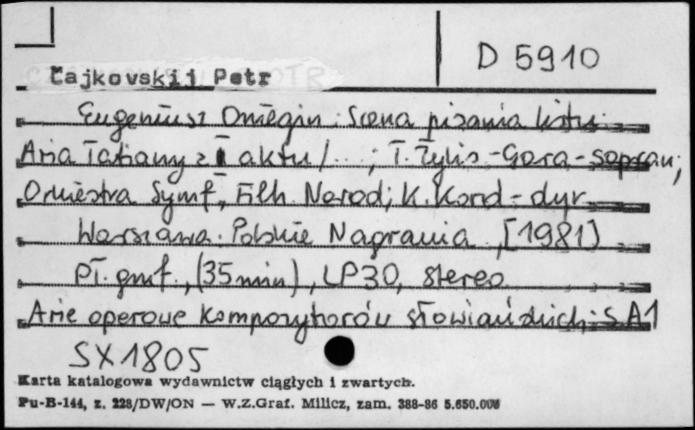 D 5910
Čajkovskij Petr
Eugeniusz Oniegin: Scena pisania listu.
Aria Tatiany z I aktu /...; T. Żylis-Gara-sopran;
Orkiestra Symf. Filh. Narod; K. Kord-dyr.
Warszawa: Polskie Nagrania, [1981]
Pł. gmf., (35min), LP30, stereo
Arie operowe kompozytorów słowiańskich; S.A1
SX1805
Karta katalogowa wydawnictw ciągłych i zwartych.
Pu-B-144, z. 228/DW/ON — W.Z.Graf. Milicz, zam. 388-86 5.650.000